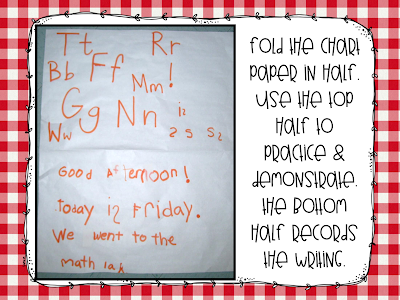 Tt Rr
Bb Ff Mm!
Gg Nn is
Ww 2 S S2
Good Afternoon!
today is Friday.
We went to the
math lak
Fold the chart
paper in half.
Use the top
half to
practice &
demonstrate.
The bottom
half records
the writing.